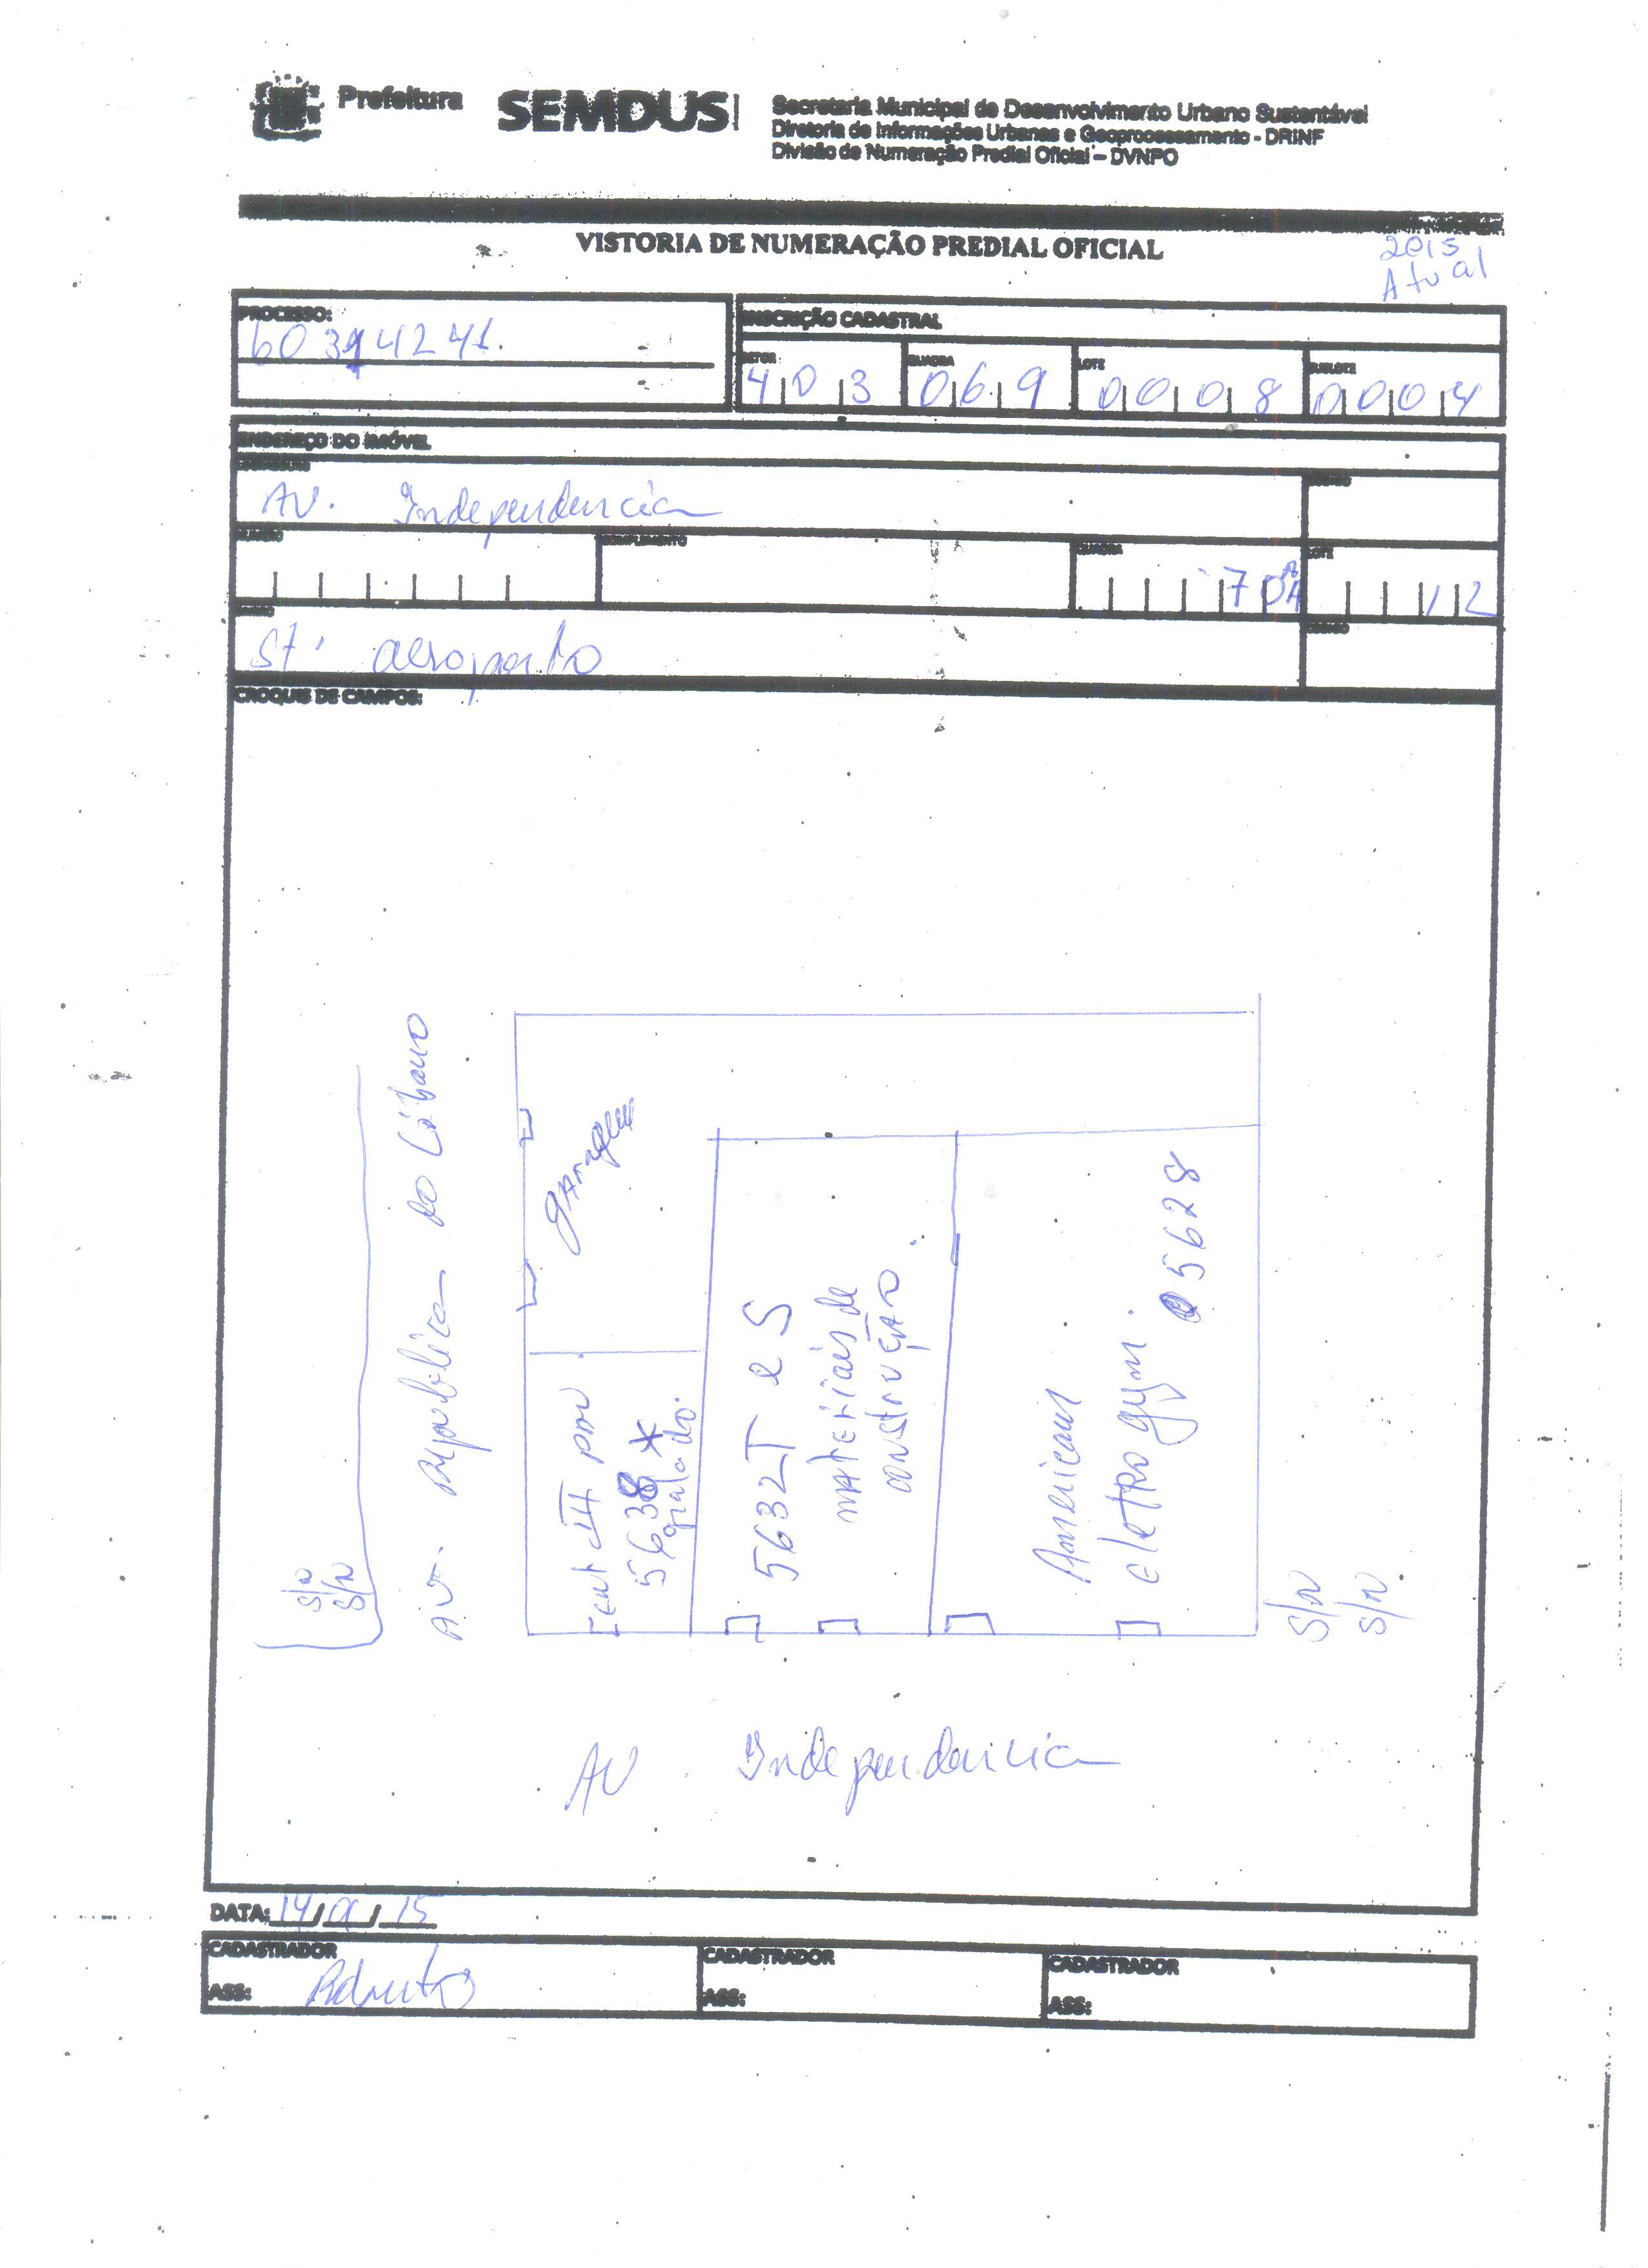 Prefeitura SEMDUS
Secretaria Municipal de Desenvolvimento Urbano Sustentável
Diretoria de Informações Urbanas e Geoprocessamento - DRINF
Divisão de Numeração Predial Oficial - DVNPO
VISTORIA DE NUMERAÇÃO PREDIAL OFICIAL
2015
Atual
PROCESSO:
INSCRIÇÃO CADASTRAL
SETOR QUADRA LOTE SUBLOTE
403 069 0008 0004
ENDEREÇO DO IMÓVEL
Av. Independencia
NUMERO COMPLEMENTO QUADRA LOTE
70A 12
St. aeroporto
CROQUIS DE CAMPOS:
Av. Republica do Líbano
S/N
S/N
garagem
5638 *
5632 T e S
materiais de
construção
American
eletro gym.
5628
S/N
S/N
AV. Independencia
DATA: 14/ / 15
CADASTRADOR CADASTRADOR CADASTRADOR
ASS: Roberto ASS: ASS: